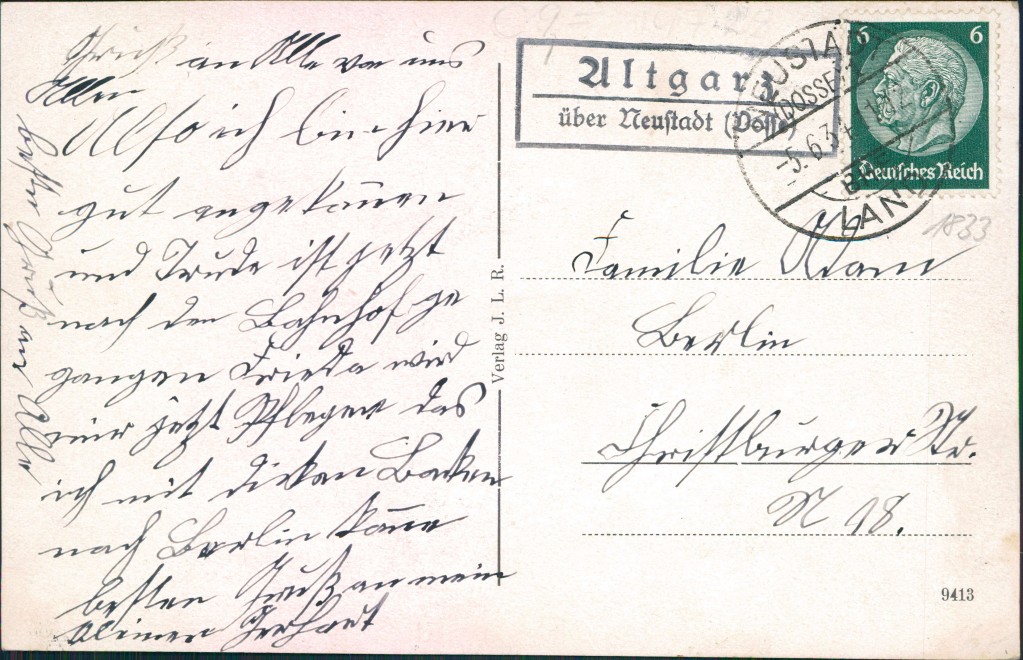 Gruß an Alle von uns
Allen
Also ich bin hier
gut angekommen
und Trude ist jetzt
nach den Bahnhof ge
gangen Frieda wird
mir jetzt Pflegen das
ich mit dicken Backen
nach Berlin komme
besten Gruß an mein
kleinen Gerhart
besten Gruß an Alle
Verlag J. L. R.
Altgarz
über Neustadt (Dosse)
NEUSTADT
(DOSSE)
-5.6.34
LAND
6 6
Deutsches Reich
1833
Familie Adam
Berlin
Christburger Str.
N 18.
9413